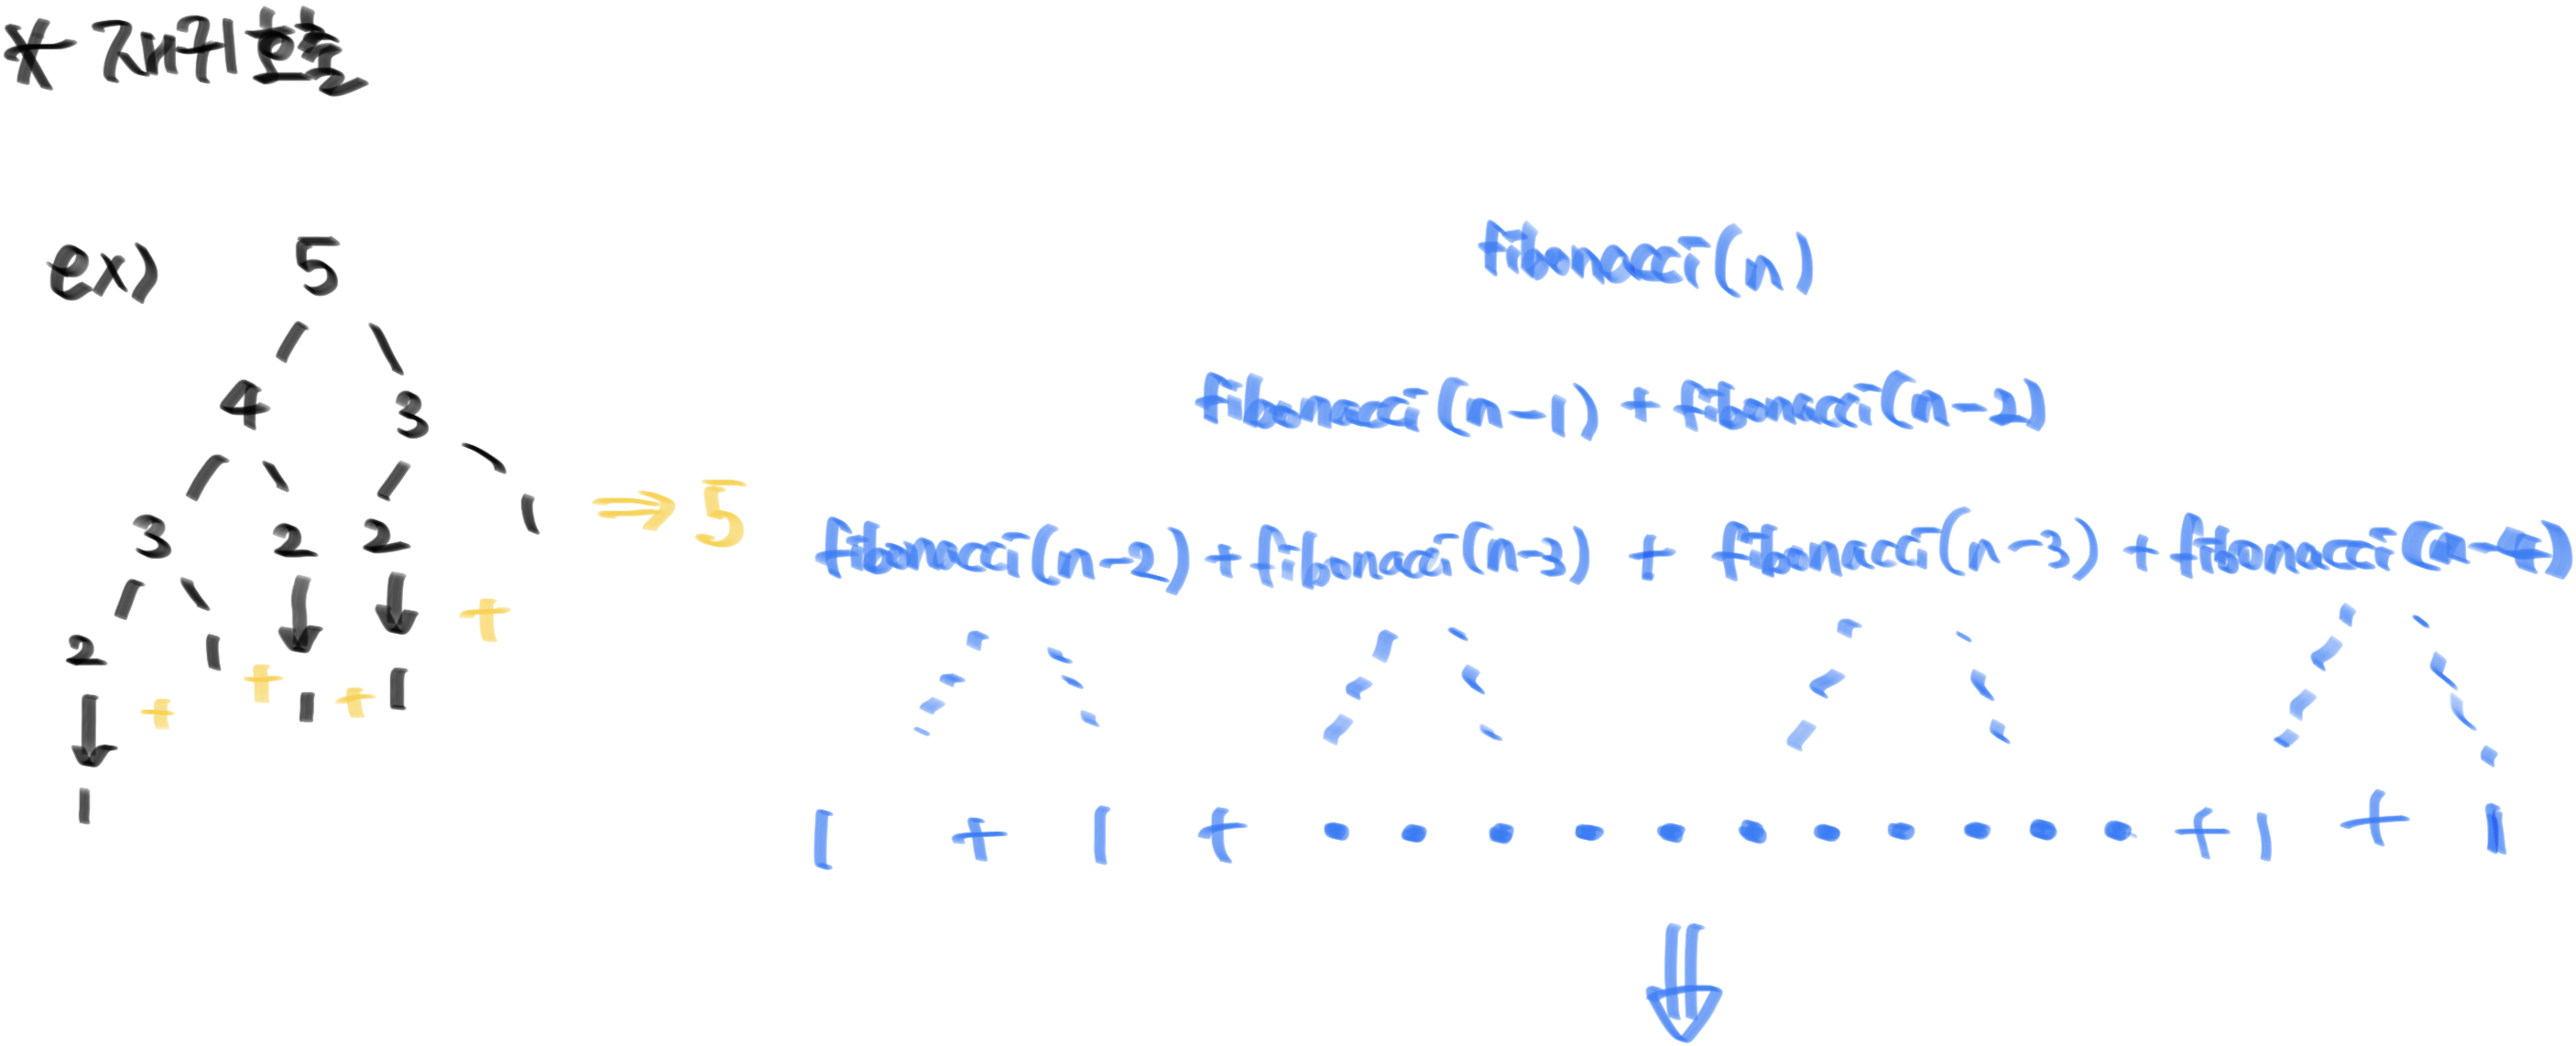 * 재귀호출
ex) 5
4 3
3 2 2 1 ⇒ 5
2 1 ↓ ↓ +
↓ + + 1 + 1
1
fibonacci(n)
fibonacci(n-1) + fibonacci(n-2)
fibonacci(n-2) + fibonacci(n-3) + fibonacci(n-3) + fibonacci(n-4)
1 + 1 + ........... + 1 + 1
⇓